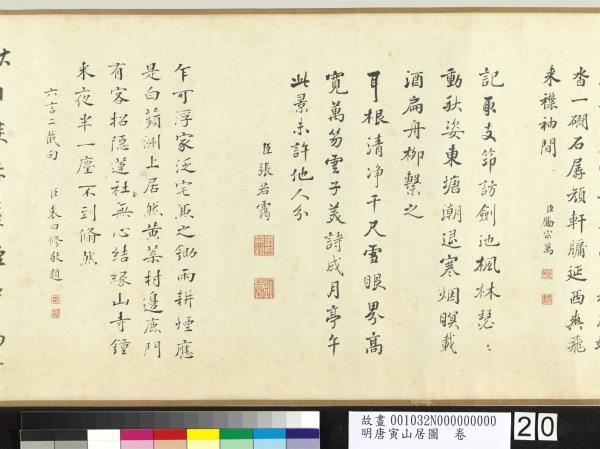 沓一磵石孱顏軒牖延西爽飛
來襟袖間
臣勵宗萬
記取支筇訪劍池楓林瑟〻
動秋姿東塘潮退寒烟暝載
酒扁舟柳繫之
耳根清淨千尺雪眼界高
寬萬笏雲子美詩成月亭午
此景未許他人分
臣張若靄
乍可浮家泛宅鋤雨耕煙應
是白蘋洲上居然黃葉村邊門
有客招隱蓮社無心結緣山寺鐘
來夜半一塵不到翛然
六言二截句 臣裘曰修敬題
故畫 001032N000000000
明唐寅山居圖 卷
20